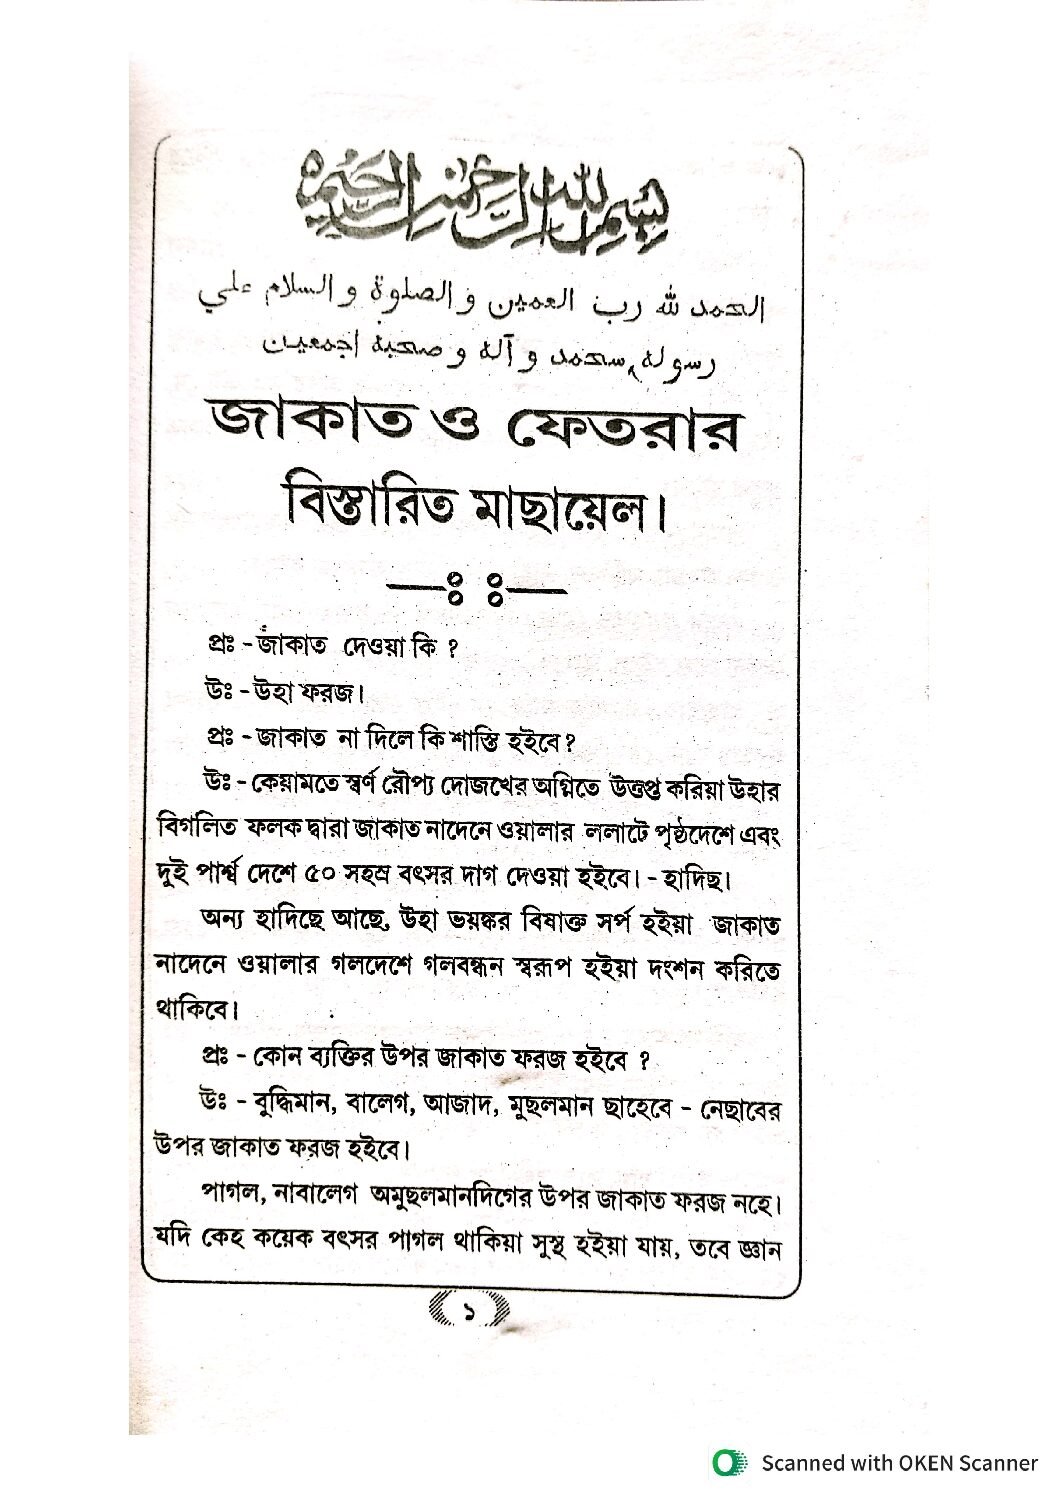 بسم الله الرحمن الرحيم
الحمد لله رب العمين و الصلوة و السلام علي
رسوله محمد و آله و صحبة اجمعين
জাকাত ও ফেতরার
বিস্তারিত মাছায়েল।
প্রঃ - জাকাত দেওয়া কি ?
উঃ - উহা ফরজ।
প্রঃ - জাকাত না দিলে কি শাস্তি হইবে?
উঃ - কেয়ামতে স্বর্ণ রৌপ্য দোজখের অগ্নিতে উত্তপ্ত করিয়া উহার
বিগলিত ফলক দ্বারা জাকাত নাদেনে ওয়ালার ললাটে পৃষ্ঠদেশে এবং
দুই পার্শ্ব দেশে ৫০ সহস্র বৎসর দাগ দেওয়া হইবে। - হাদিছ।
অন্য হাদিছে আছে, উহা ভয়ঙ্কর বিষাক্ত সর্প হইয়া জাকাত
নাদেনে ওয়ালার গলদেশে গলবন্ধন স্বরূপ হইয়া দংশন করিতে
থাকিবে।
প্রঃ - কোন ব্যক্তির উপর জাকাত ফরজ হইবে ?
উঃ - বুদ্ধিমান, বালেগ, আজাদ, মুছলমান ছাহেবে - নেছাবের
উপর জাকাত ফরজ হইবে।
পাগল, নাবালেগ অমুছলমানদিগের উপর জাকাত ফরজ নহে।
যদি কেহ কয়েক বৎসর পাগল থাকিয়া সুস্থ হইয়া যায়, তবে জ্ঞান
১
Scanned with OKEN Scanner